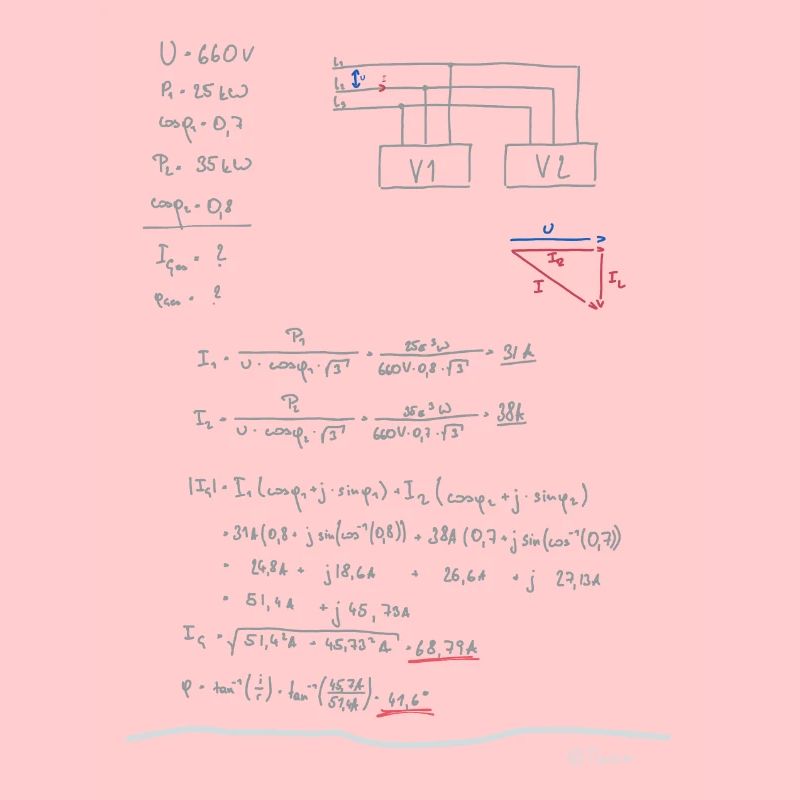 U = 660V
P₁ = 25 kW
cosφ₁ = 0,7
P₂ = 35 kW
cosφ₂ = 0,8
I_ges = ?
φ_ges = ?
L₁
L₂
L₃
U
I
V1
V2
U
I_R
I
I_L
I₁ = P₁ / (U · cosφ₁ · √3) = 25e³W / (660V · 0,8 · √3) = 31A
I₂ = P₂ / (U · cosφ₂ · √3) = 35e³W / (660V · 0,7 · √3) = 38A
|I_G| = I₁ (cosφ₁ + j · sinφ₁) + I₂ (cosφ₂ + j · sinφ₂)
= 31A (0,8 + j sin(cos⁻¹(0,8)) + 38A (0,7 + j sin(cos⁻¹(0,7))
= 24,8A + j18,6A + 26,6A + j 27,13A
= 51,4A + j 45,73A
I_G = √(51,4²A + 45,73²A) = 68,79A
φ = tan⁻¹(i/r) = tan⁻¹(45,7A/51,4A) = 41,6°